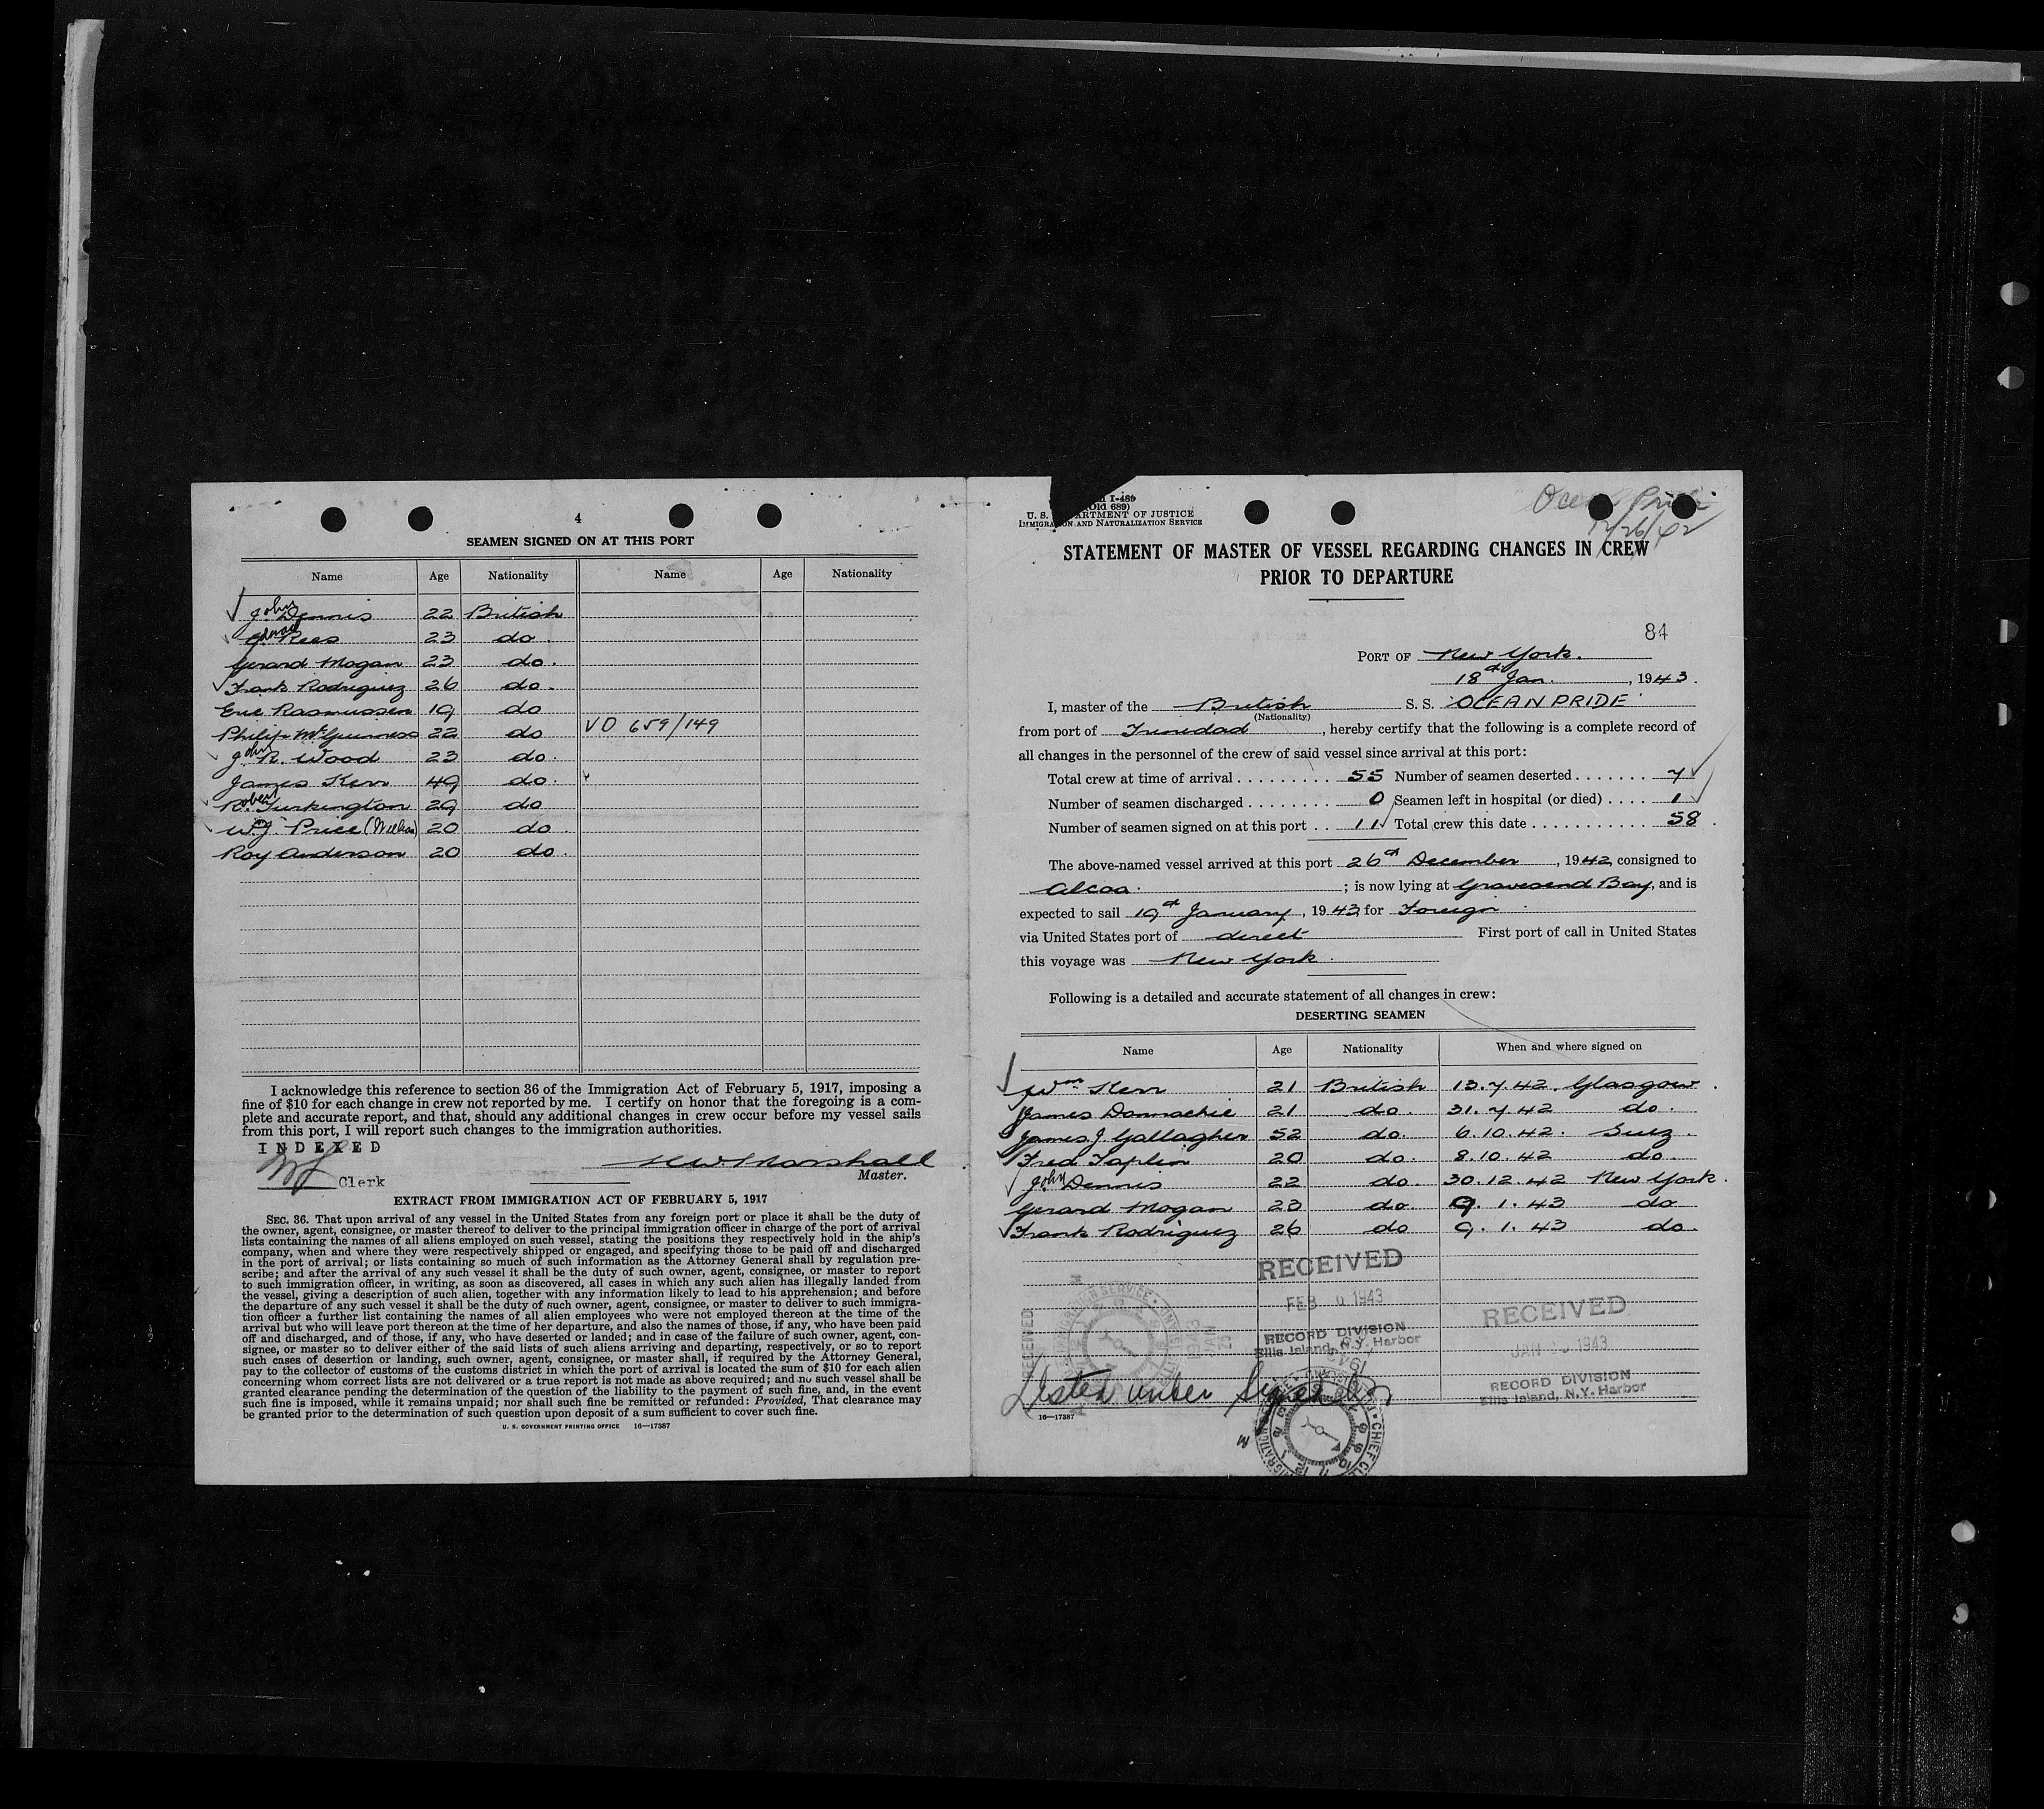 4
SEAMEN SIGNED ON AT THIS PORT
Name Age Nationality Name Age Nationality
John Dennis 22 British
Rees 23 do.
Gerard Mogan 23 do.
Frank Rodriguez 26 do.
Eric Rasmussen 19 do
Philip McGuinness 22 do VO 659/149
John R. Wood 23 do.
James Kerr 49 do.
Robert Turkington 29 do
W.J. Price (William) 20 do.
Roy Anderson 20 do.
I acknowledge this reference to section 36 of the Immigration Act of February 5, 1917, imposing a
fine of $10 for each change in crew not reported by me. I certify on honor that the foregoing is a com-
plete and accurate report, and that, should any additional changes in crew occur before my vessel sails
from this port, I will report such changes to the immigration authorities.
INDEXED
Clerk
Marshall
Master.
EXTRACT FROM IMMIGRATION ACT OF FEBRUARY 5, 1917
SEC. 36. That upon arrival of any vessel in the United States from any foreign port or place it shall be the duty of
the owner, agent, consignee, or master thereof to deliver to the principal immigration officer in charge of the port of arrival
lists containing the names of all aliens employed on such vessel, stating the positions they respectively hold in the ship's
company, when and where they were respectively shipped or engaged, and specifying those to be paid off and discharged
in the port of arrival; or lists containing so much of such information as the Attorney General shall by regulation pre-
scribe; and after the arrival of any such vessel it shall be the duty of such owner, agent, consignee, or master to report
to such immigration officer, in writing, as soon as discovered, all cases in which any such alien has illegally landed from
the vessel, giving a description of such alien, together with any information likely to lead to his apprehension; and before
the departure of any such vessel it shall be the duty of such owner, agent, consignee, or master to deliver to such immigra-
tion officer a further list containing the names of all alien employees who were not employed thereon at the time of the
arrival but who will leave port thereon at the time of her departure, and also the names of those, if any, who have been paid
off and discharged, and of those, if any, who have deserted or landed; and in case of the failure of such owner, agent, con-
signee, or master so to deliver either of the said lists of such aliens arriving and departing, respectively, or so to report
such cases of desertion or landing, such owner, agent, consignee, or master shall, if required by the Attorney General,
pay to the collector of customs of the customs district in which the port of arrival is located the sum of $10 for each alien
concerning whom correct lists are not delivered or a true report is not made as above required; and no such vessel shall be
granted clearance pending the determination of the question of the liability to the payment of such fine, and, in the event
such fine is imposed, while it remains unpaid; nor shall such fine be remitted or refunded: Provided, That clearance may
be granted prior to the determination of such question upon deposit of a sum sufficient to cover such fine.
U. S. GOVERNMENT PRINTING OFFICE 16—17387
I-489
(Old 689)
U. S. DEPARTMENT OF JUSTICE
IMMIGRATION AND NATURALIZATION SERVICE
Ocean Pride
12/26/42
STATEMENT OF MASTER OF VESSEL REGARDING CHANGES IN CREW
PRIOR TO DEPARTURE
84
PORT OF New York.
18th Jan., 1943.
I, master of the British S. S. 'OCEAN PRIDE'
(Nationality)
from port of Trinidad, hereby certify that the following is a complete record of
all changes in the personnel of the crew of said vessel since arrival at this port:
Total crew at time of arrival . . . . . . . . . 55 Number of seamen deserted . . . . . . . 7
Number of seamen discharged . . . . . . . . 0 Seamen left in hospital (or died) . . . . 1
Number of seamen signed on at this port . . 11 Total crew this date . . . . . . . . . . . 58
The above-named vessel arrived at this port 26th December, 1942, consigned to
Alcoa. ; is now lying at Gravesend Bay, and is
expected to sail 19th January, 1943, for Foreign
via United States port of direct First port of call in United States
this voyage was New York.
Following is a detailed and accurate statement of all changes in crew:
DESERTING SEAMEN
Name Age Nationality When and where signed on
Wm Kerr 21 British 13.7.42. Glasgow.
James Donnachie 21 do. 31.7.42 do.
James J. Gallagher 52 do. 6.10.42. Suez.
Fred Taplin 20 do. 8.10.42 do.
John Dennis 22 do. 30.12.42 New York.
Gerard Mogan 23 do 9.1.43 do
Frank Rodriguez 26 do 9.1.43 do.
RECEIVED
FEB 1943
RECORD DIVISION
Ellis Island, N.Y. Harbor
RECEIVED
JAN 1943
RECORD DIVISION
Ellis Island, N.Y. Harbor
Listed under Signed on
16—17387